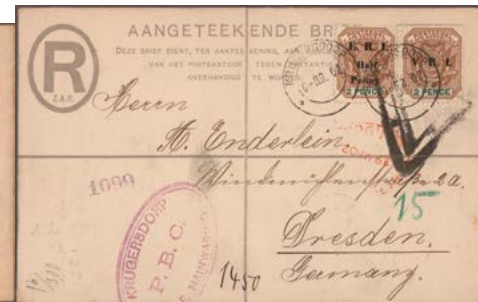 AANGETEEKENDE BR
R
Z.A.R.
DEZE BRIEF DIENT, TER AANTEEKENING, AAN
VAN HET POSTKANTOOR TEGEN
OVERHANDIGD TE WORDEN
E. R. I.
Half
Penny
2 PENCE
V. R. I.
2 PENCE
Herrn
A. Enderlein,
2a.
1099
15
Dresden.
Germany.
KRUGERSDORP
P. B. C.
1450